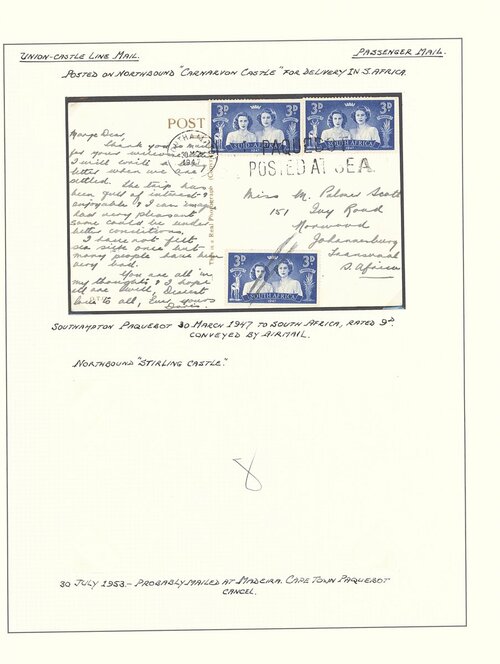 UNION-CASTLE LINE MAIL.
PASSENGER MAIL.
POSTED ON NORTHBOUND "CARNARVON CASTLE" FOR DELIVERY IN S. AFRICA.
POST
3D 3D 3D 3D
SOUTH AFRICA
PAQUEBOT
POSTED AT SEA.
1947
Marge Dear,
Thank you so much
for your
I will write a
letter when we are
settled. The trip has
been full of interest &
enjoyable & I can
had very pleasant
some could be under
better conditions.
I have not felt
sea sick once but
many people have been
very bad.
You are all in
my thoughts & I hope
all are well. Dearest
love to all, Ever yours
Doris.
is a Real Photograph
Miss M. Palmer Scott
151 Ivy Road
Norwood
Johannesburg
Transvaal
S. Africa
3D 3D
SOUTH AFRICA
SOUTHAMPTON PAQUEBOT 30 MARCH 1947 TO SOUTH AFRICA, RATED 9D
CONVEYED BY AIRMAIL.
NORTHBOUND "STIRLING CASTLE."
8
30 JULY 1953 - PROBABLY MAILED AT MADEIRA. CAPE TOWN PAQUEBOT
CANCEL.